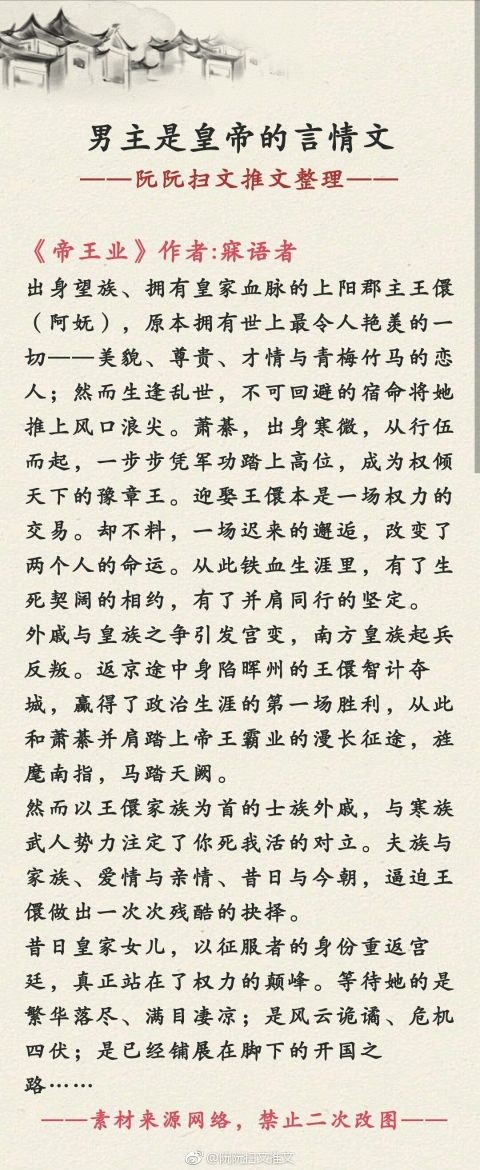 男主是皇帝的言情文
——阮阮扫文推文整理——
《帝王业》作者:寐语者
出身望族、拥有皇家血脉的上阳郡主王儇
（阿妩），原本拥有世上最令人艳羡的一
切——美貌、尊贵、才情与青梅竹马的恋
人；然而生逢乱世，不可回避的宿命将她
推上风口浪尖。萧綦，出身寒微，从行伍
而起，一步步凭军功踏上高位，成为权倾
天下的豫章王。迎娶王儇本是一场权力的
交易。却不料，一场迟来的邂逅，改变了
两个人的命运。从此铁血生涯里，有了生
死契阔的相约，有了并肩同行的坚定。
外戚与皇族之争引发宫变，南方皇族起兵
反叛。返京途中身陷晖州的王儇智计夺
城，赢得了政治生涯的第一场胜利，从此
和萧綦并肩踏上帝王霸业的漫长征途，旌
麾南指，马踏天阙。
然而以王儇家族为首的士族外戚，与寒族
武人势力注定了你死我活的对立。夫族与
家族、爱情与亲情、昔日与今朝，逼迫王
儇做出一次次残酷的抉择。
昔日皇家女儿，以征服者的身份重返宫
廷，真正站在了权力的颠峰。等待她的是
繁华落尽、满目凄凉；是风云诡谲、危机
四伏；是已经铺展在脚下的开国之
路……
——素材来源网络，禁止二次改图——
@阮阮扫文推文